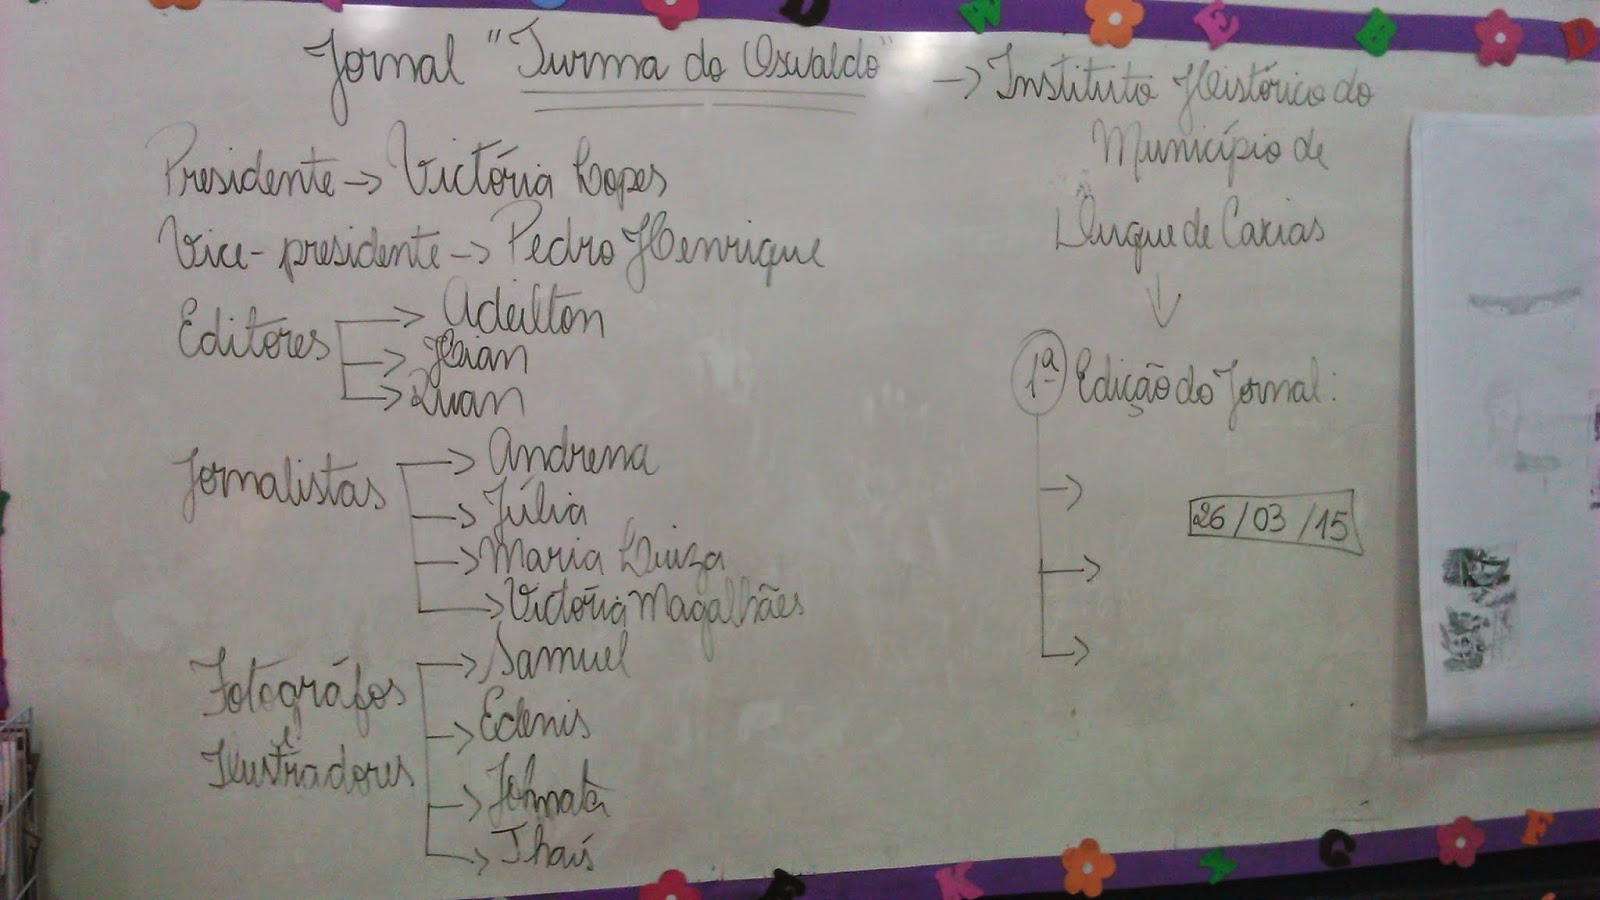 Jornal "Turma do Oswaldo"
Presidente -> Victória Lopes
Vice-presidente -> Pedro Henrique
Editores
Adeilton
Hian
Ruan
Jornalistas
Andrena
Júlia
Maria Luiza
Victória Magalhães
Fotográfos
e
Ilustradores
Samuel
Edenis
Johnata
Thaís
-> Instituto Histórico do
Município de
Duque de Caxias
1ª Edição do Jornal:
26/03/15